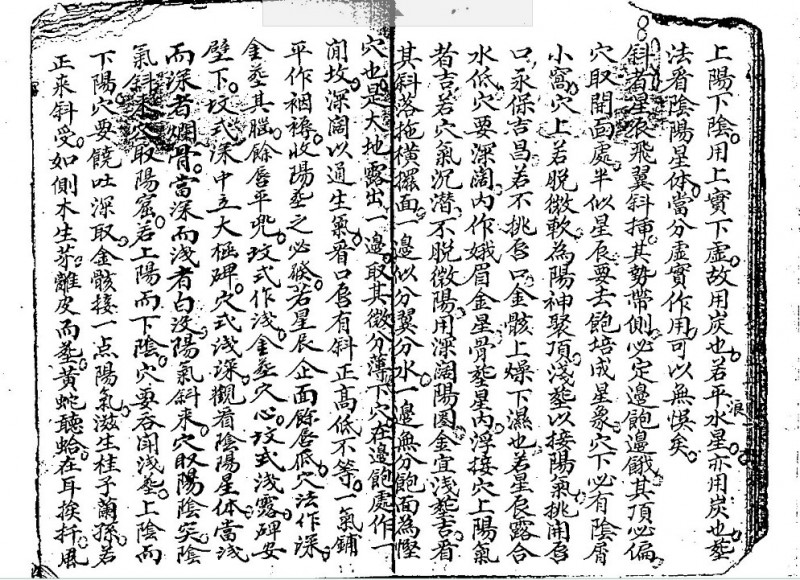 上陽下陰用上實下虛故用炭也若平水星亦用炭也葬
浪
法看陰陽星体當分虛實作用可以無悞矣
斜者星辰飛翼斜挿其勢帶側必定邊飽邊餓其頂必偏
穴取開面處半似星辰要去飽培成星象穴下必有陰脣
小窩穴上若脫微軟為陽神聚頂淺葬以接陽氣挑開唇
口永保吉昌若不挑唇口金骸上燥下濕也若星辰露合
水低穴要深濶內作娥眉金星骨葬星內浮接穴上陽氣
者吉若穴氣沉潜不脫微陽用深濶陽圓金宜淺葬吉看
其斜落拖橫擺面一邊似分翼分水一邊無分飽面為慳
穴也是大地露出一邊取其微分薄下穴在邊飽處作一
開坟深濶以通生氣看口唇有斜正高低不等一氣鋪
平作裀褥收陽葬之必發若星辰企面餘唇低穴法作深
金葬其腦餘唇平兜坟式作淺金葬穴心坟式淺露碑安
壁下坟式深中立大極碑穴式淺深觀看陰陽星体當淺
而深者爛骨當深而淺者白沒陽氣斜來穴取陽陰突陰
氣斜來穴取陽窟若上陽而下陰穴要吞開淺葬上陰而
下陽穴要饒吐深取金骸接一点陽氣滋生桂子蘭孫若
正來斜受如側木生芽離皮而葬黃蛇聽蛤在耳挨拤風